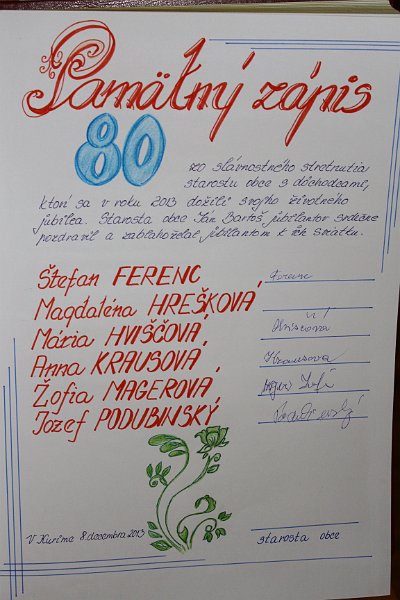 Pamätný zápis
80
zo slávnostného stretnutia
starostu obce s dôchodcami,
ktorí sa v roku 2013 dožili svojho životného
jubilea. Starosta obce Ján Bartoš jubilantov srdečne
pozdravil a zablahoželal jubilantom k ich sviatku.
Štefan FERENC, Ferenc
Magdaléna HREŠKOVÁ,
Mária HVIŠČOVÁ, Hviščová
Anna KRAUSOVÁ, Krausová
Žofia MAGEROVÁ,
Jozef PODUBINSKÝ
V Kurime 8. decembra 2013
starosta obce